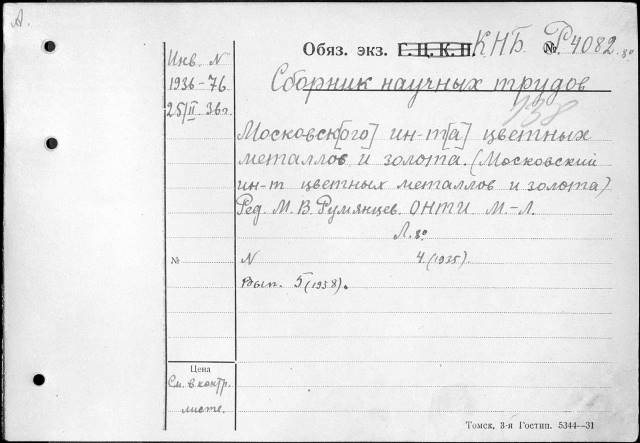 А.
Обяз. экз. Г. Ц. К. П. КНБ № Р4082 8°
Инв. N
1936-76
25/II 36г.
Сборник научных трудов
138
Московск[ого] ин-т[а] цветных
металлов и золота. (Московский
ин-т цветных металлов и золота)
Ред. М. В. Румянцев. ОНТИ М.-Л.
Л. 8°
№ N 4. (1935).
Вып. 5 (1938).
Цена
См. в контр.
листе.
Томск, 3-я Гостип. 5344—31